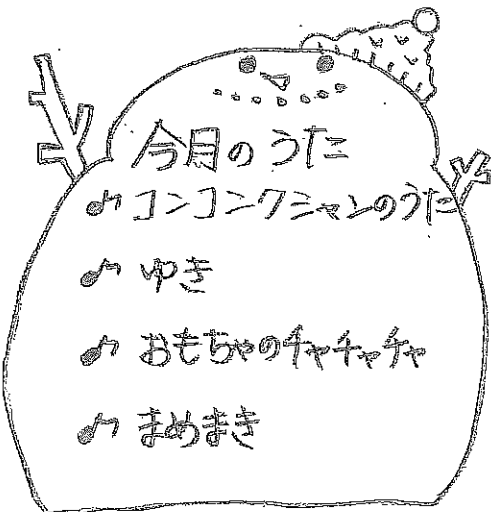 今月のうた
♪コンコンクシャンのうた
♪ゆき
♪おもちゃのチャチャチャ
♪まめまき